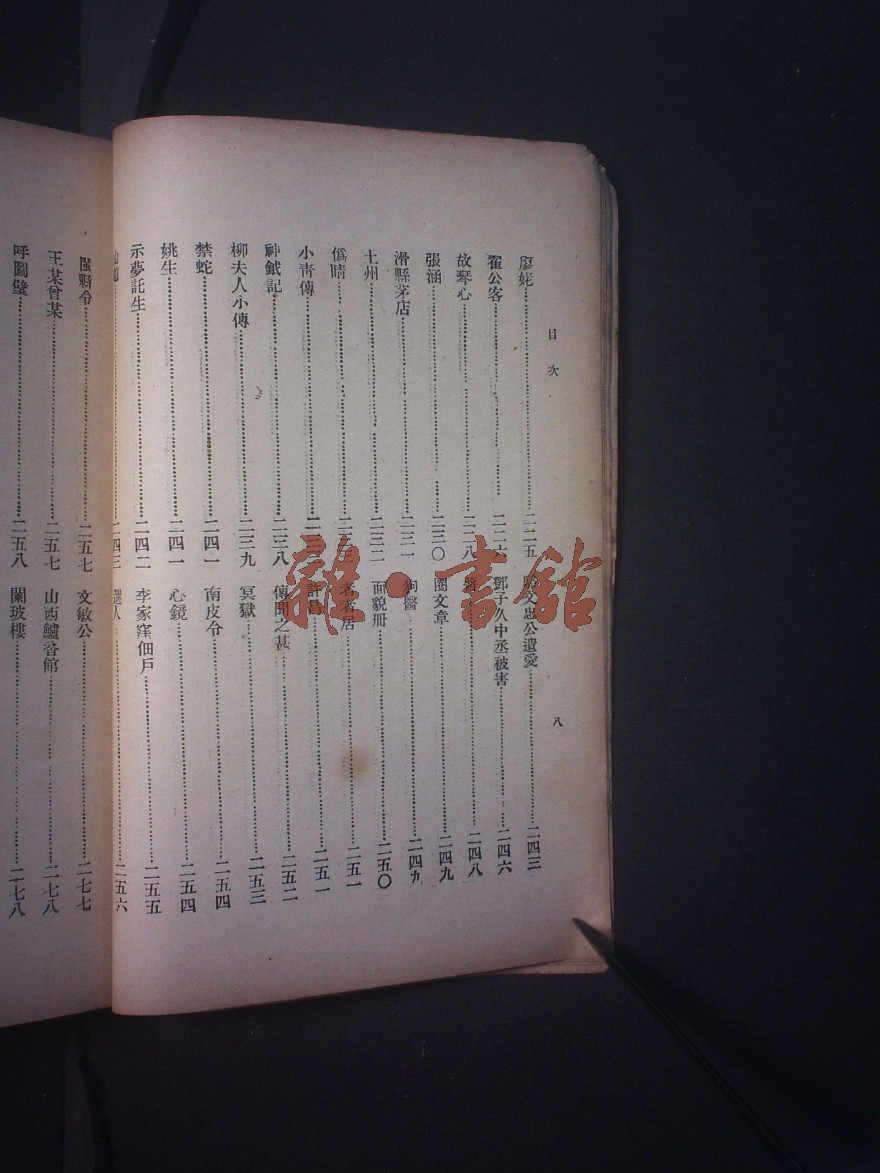 目次
八
廖姥 二二五
翟公客 二二六
故琴心 二二八
張涵 二三〇
滑縣茅店 二三一
土州 二三二
僞晴
小青傳
神鉞記 二三八
柳夫人小傳 二三九
禁蛇 二四一
姚生 二四一
示夢託生 二四二
二四三
文忠公遺愛 二四三
鄧子久中丞被害 二四六
二四八
圈文章 二四九
狗醫 二四九
面貌册 二五〇
者者居 二五一
許昌 二五一
傳聞之甚 二五二
冥獄 二五三
南皮令 二五四
心鏡 二五四
李家窪佃戶 二五五
選人 二五六
縣令 二五七
王某曾某 二五七
呼圖璧 二五八
文敏公 二七七
山西鱸香館 二七八
蘭玻樓 二七八
雜·書館